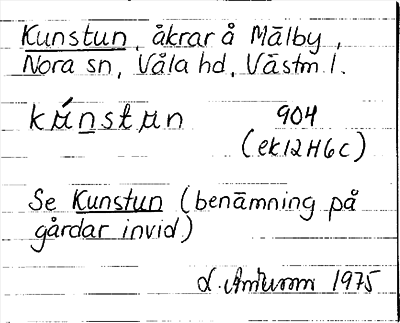 Kunstun, åkrar å Mälby,
Nora sn, Våla hd, Västm l.
kú̱nstun 904
(ek12H6C)
Se Kunstun (benämning på
gårdar invid)
1975